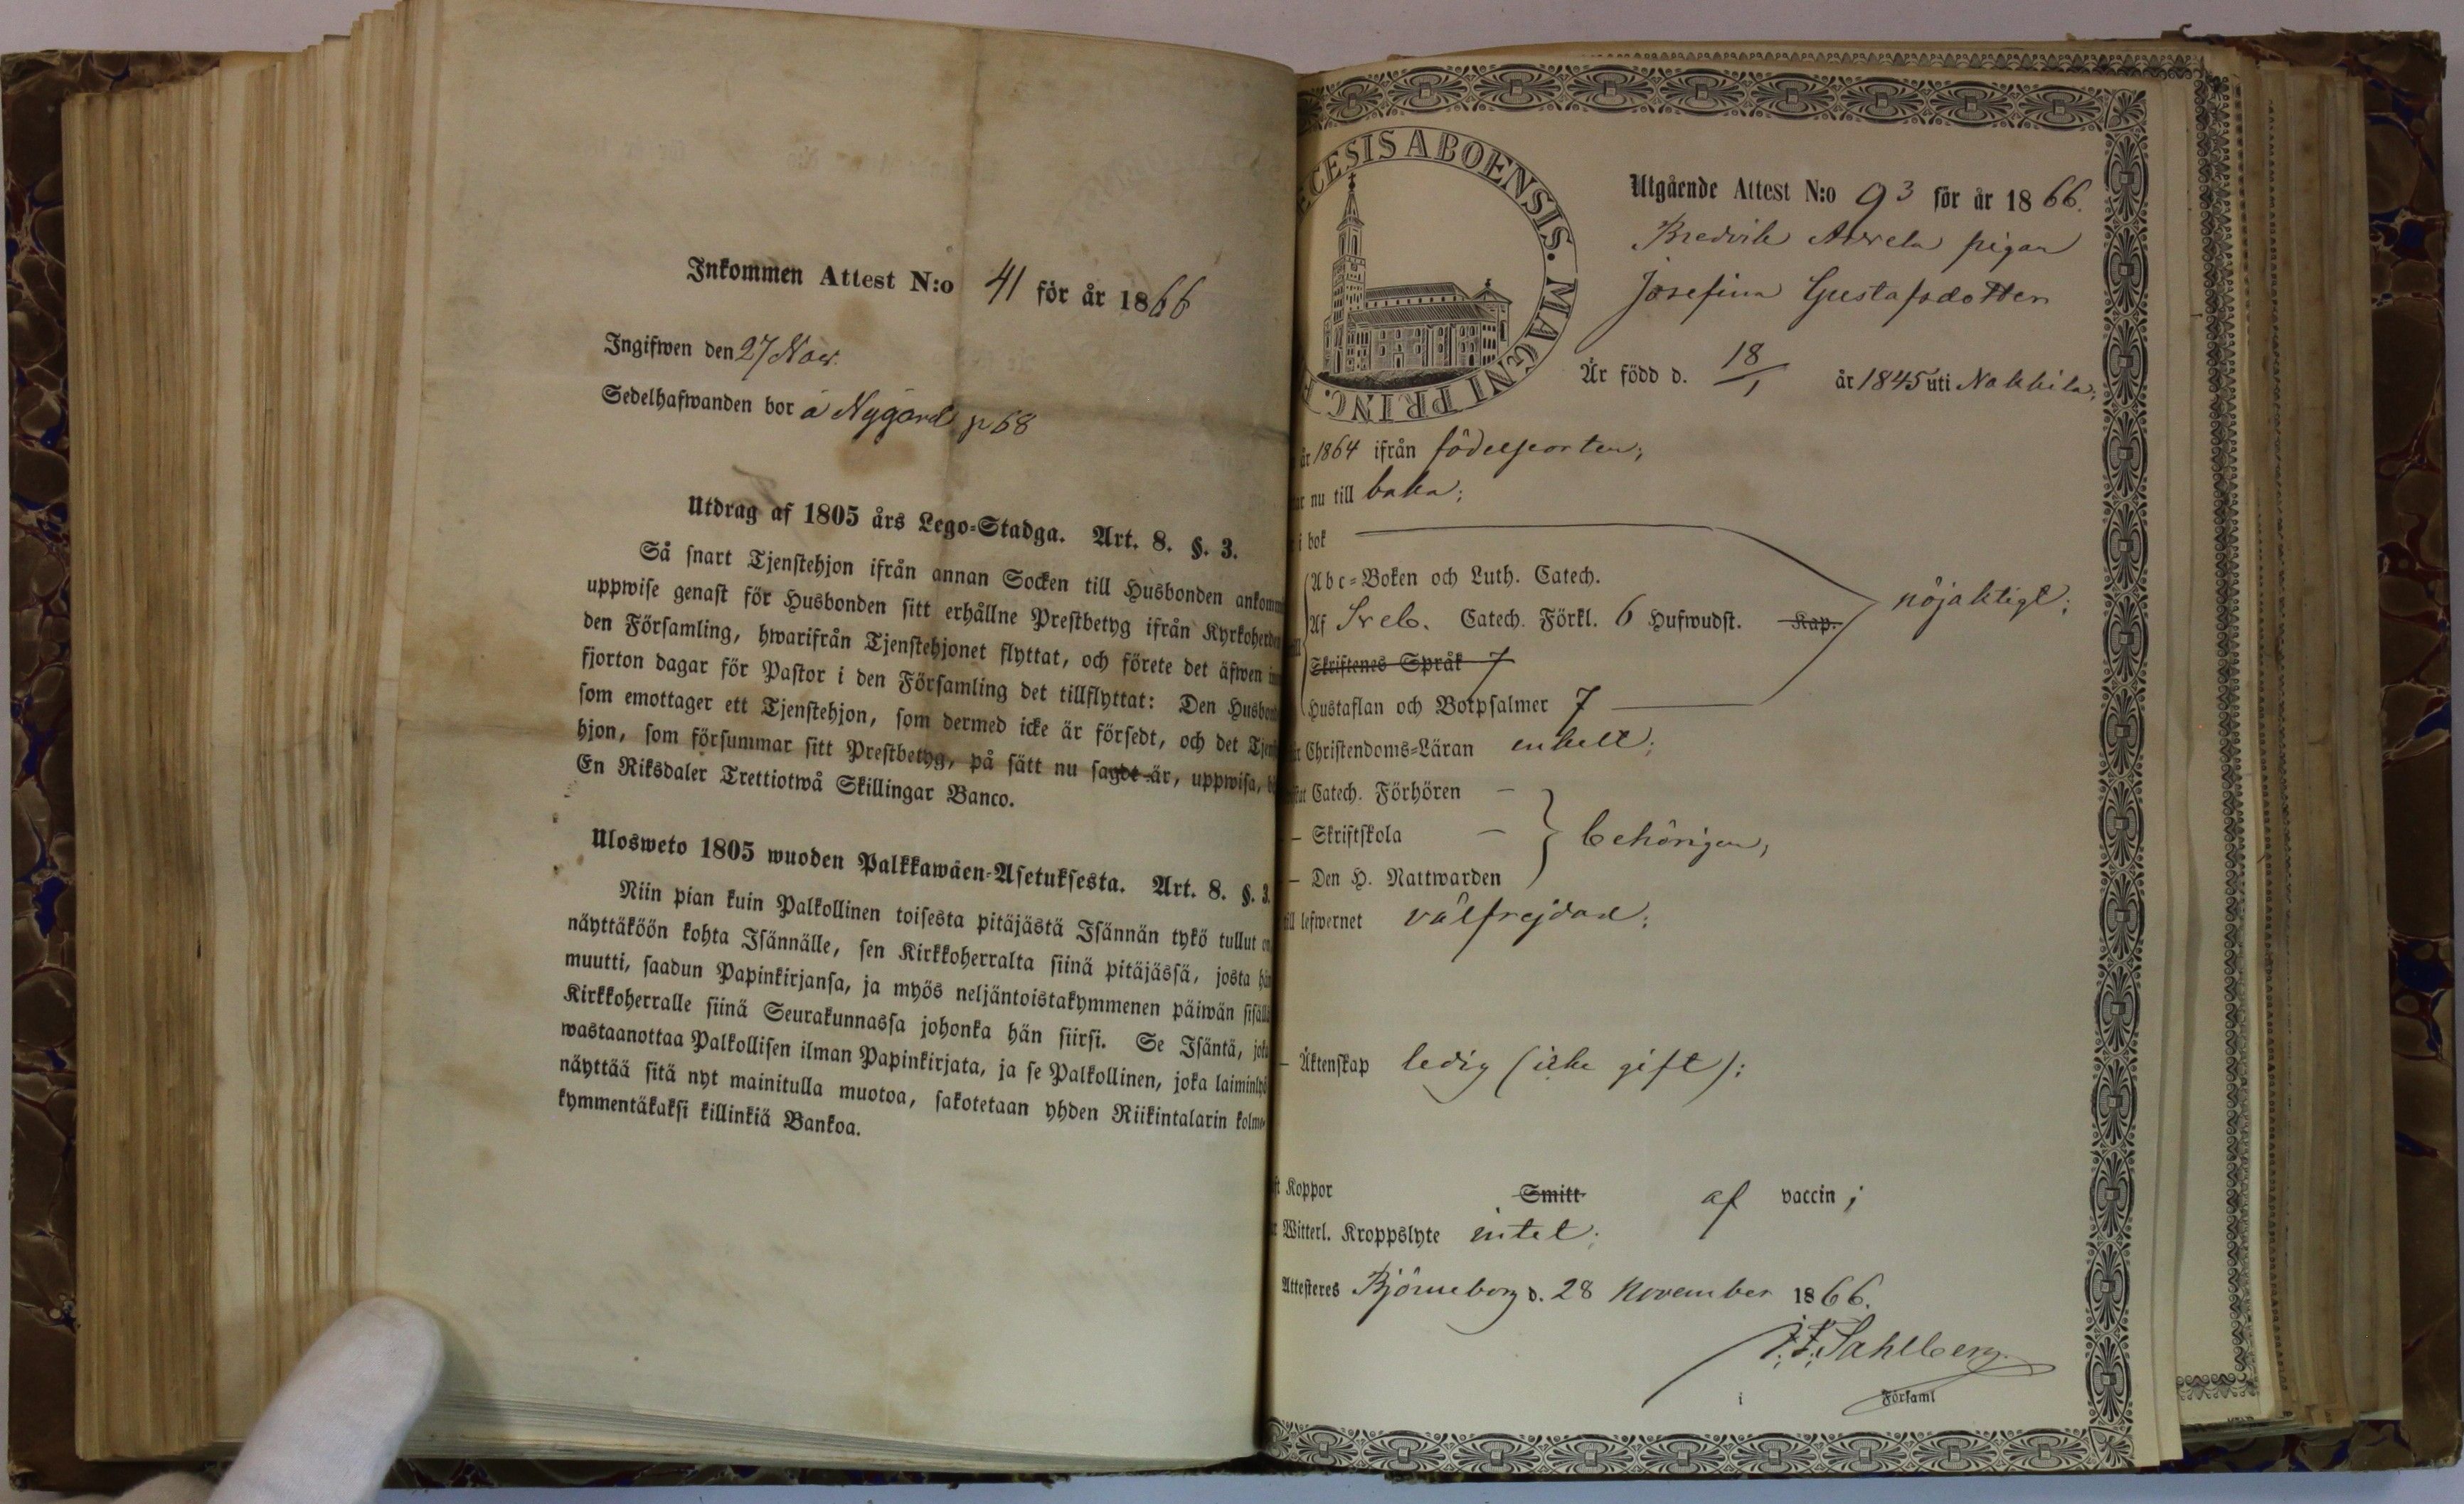 Inkommen Attest N:o 41 för år 1866
Ingifwen den 27 Nov.
Sedelhafwanden bor å Nygård p 68
Utdrag af 1805 års Lego-Stadga. Art. 8. §. 3.
Så snart Tjenstehjon ifrån annan Socken till Husbonden
uppwise genast för Husbonden sitt erhållne Prestbetyg ifrån
den Församling, hwarifrån Tjenstehjonet flyttat, och förete det äfwen
fjorton dagar för Pastor i den Församling det tillflyttat: Den
som emottager ett Tjenstehjon, som dermed icke är försedt, och det
hjon, som försummar sitt Prestbetyg, på sätt nu sagdt är, uppwisa,
En Riksdaler Trettiotwå Skillingar Banco.
Ulosweto 1805 wuoden Palkkawäen-Asetuksesta. Art. 8. §. 3.
Niin pian kuin Palkollinen toisesta pitäjästä Isännän tykö tullut
näyttäköön kohta Isännälle, sen Kirkkoherralta siinä pitäjässä, josta
muutti, saadun Papinkirjansa, ja myös neljäntoistakymmenen päiwän
Kirkkoherralle siinä Seurakunnassa johonka hän siirsi. Se Isäntä,
wastaanottaa Palkollisen ilman Papinkirjata, ja se Palkollinen, joka
näyttää sitä nyt mainitulla muotoa, sakotetaan yhden Riikintalarin kolme-
kymmentäkaksi killinkiä Bankoa.
CESIS ABOENSIS. MAGNI PRINC.
Utgående Attest N:o 93 för år 1866.
pigan
Josefina Gustafsdotter
Är född d. 18/1 år 1845 uti Nakkila;
år 1864 ifrån födelseorten;
nu till baka;
i bok
Abc-Boken och Luth. Catech.
Af Sveb. Catech. Förkl. 6 Hufwudst. Kap. nöjaktigt;
Skriftenes Språk 7
Hustaflan och Botpsalmer 7
Christendoms-Läran enkelt;
Catech. Förhören –
– Skriftskola – behörigen,
– Den H. Nattwarden
till lefwernet välfrejdad;
– Äktenskap ledig (icke gift);
Koppor Smitt af vaccin;
Witterl. Kroppslyte intet;
Attesteres Björneborg d. 28 November 1866.
J. F. Sahlberg
i Församl